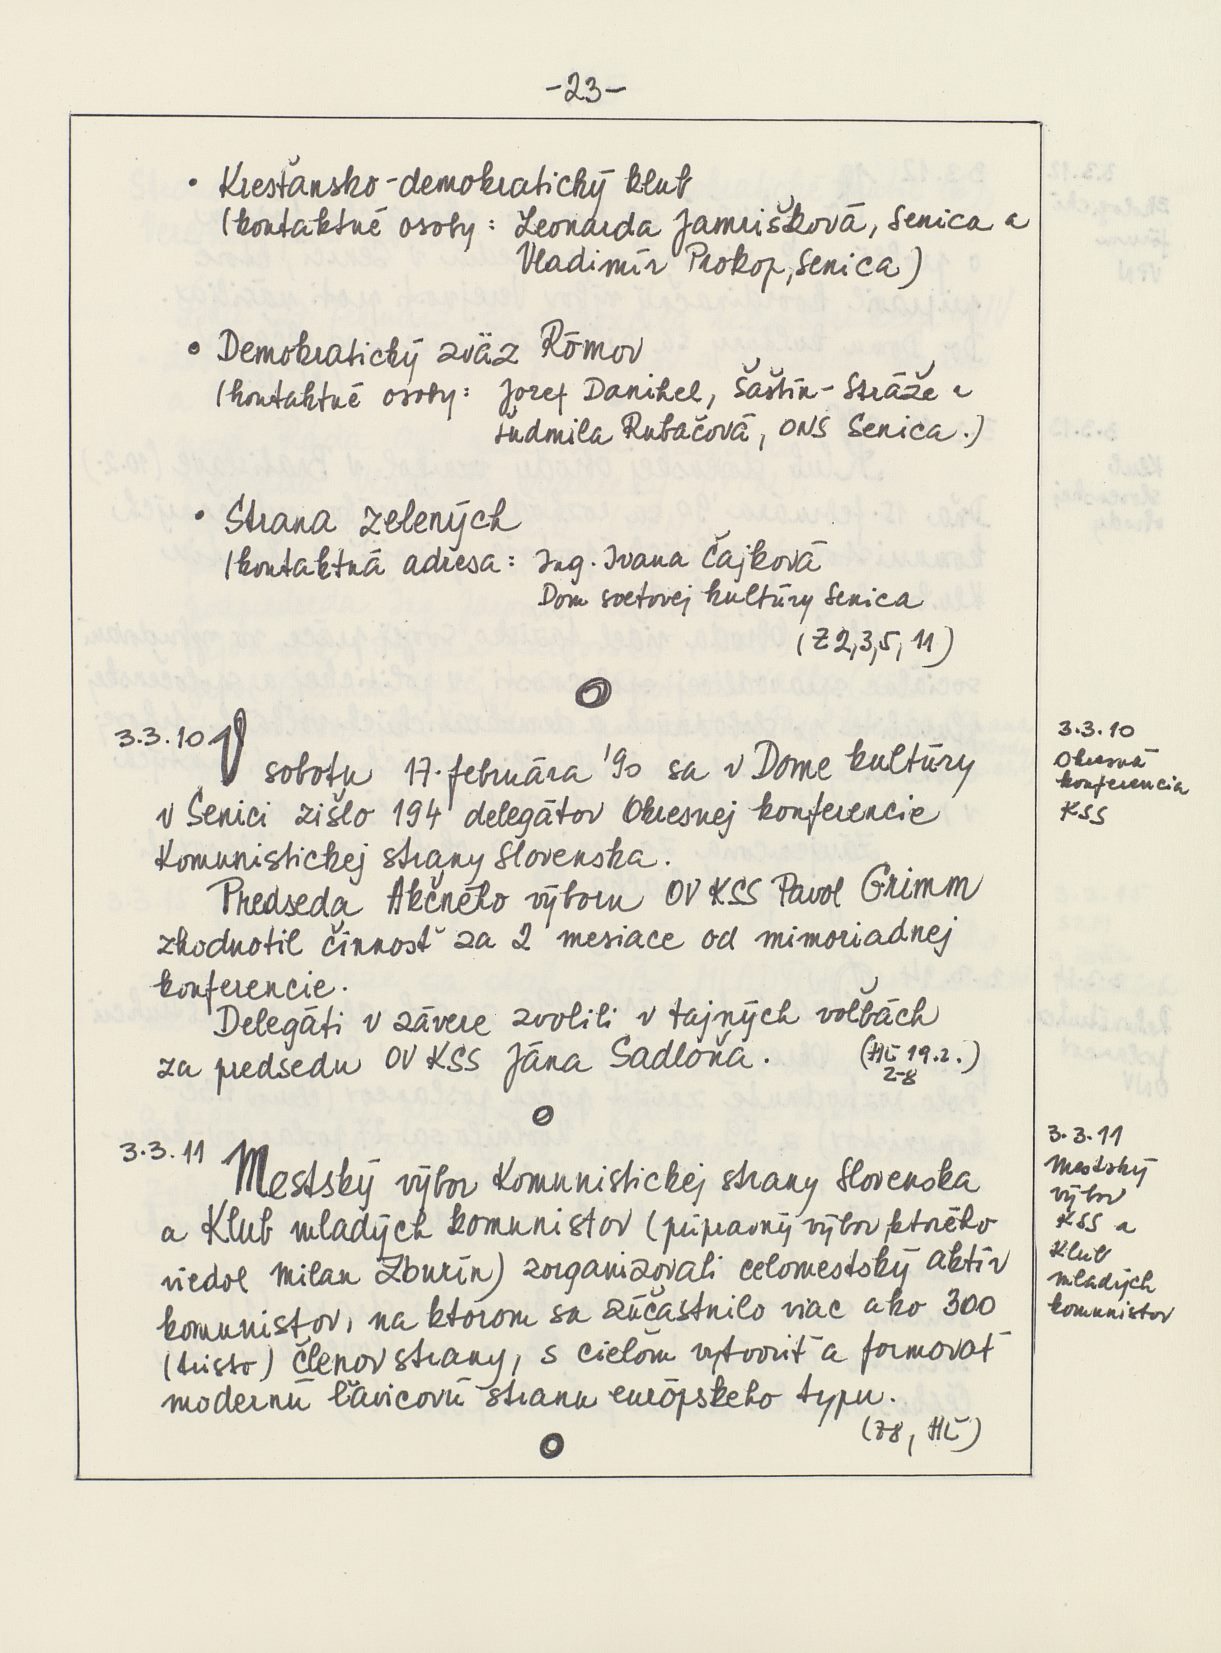 -23-
• Kresťansko-demokratický klub
(kontaktné osoby: Leonarda Jamrišková, Senica a
Vladimír Prokop, Senica)
• Demokratický zväz Rómov
(kontaktné osoby: Jozef Danihel, Šaštín-Stráže a
Ľudmila Rubačová, ONS Senica.)
• Strana zelených
(kontaktná adresa: Ing. Ivana Čajková
Dom svetovej kultúry Senica
(Z 2,3,5, 11)
3.3.10 V sobotu 17. februára '90 sa v Dome kultúry
v Senici zišlo 194 delegátov Okresnej konferencie
Komunistickej strany Slovenska.
Predseda Akčného výboru OV KSS Pavol Grimm
zhodnotil činnosť za 2 mesiace od mimoriadnej
konferencie.
Delegáti v závere zvolili v tajných voľbách
za predsedu OV KSS Jána Sadloňa. (HĽ 19.2.)
Z-8
3.3.10
Okresná
konferencia
KSS
3.3.11 Mestský výbor Komunistickej strany Slovenska
a Klub mladých komunistov (prípravný výbor ktorého
viedol Milan Zburín) zorganizovali celomestský aktív
komunistov, na ktorom sa zúčastnilo viac ako 300
(tristo) členov strany, s cieľom vytvoriť a formovať
modernú ľavicovú stranu európskeho typu.
(Z8, HĽ)
3.3.11
Mestský
výbor
KSS a
Klub
mladých
komunistov